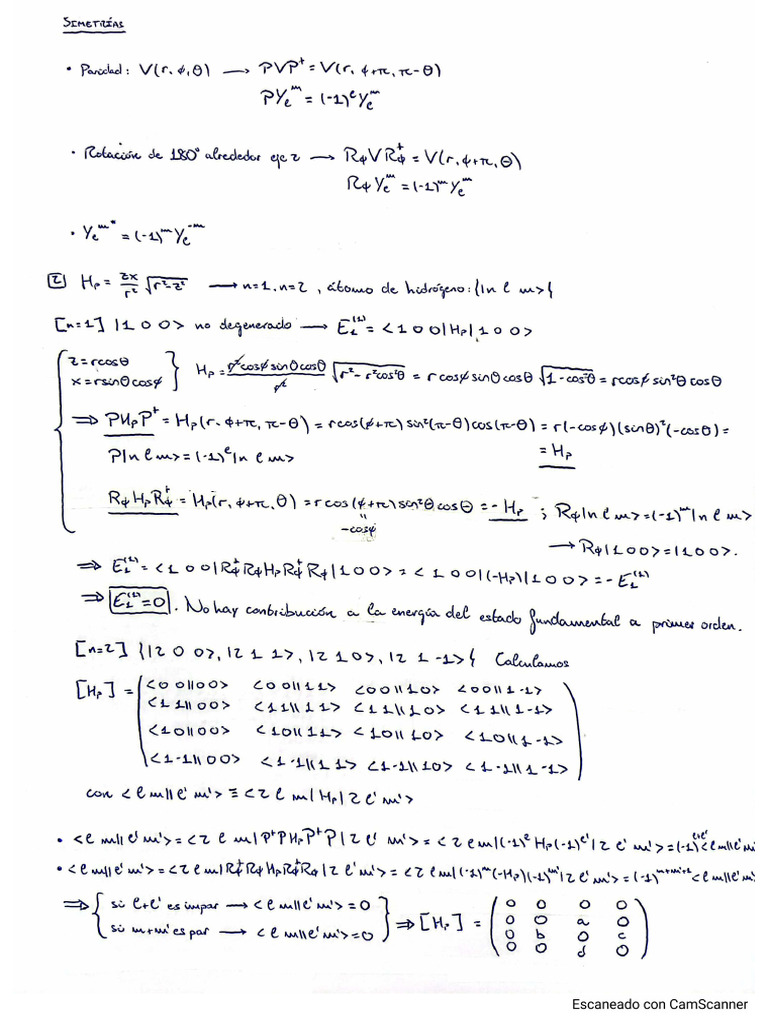 SIMETRÍAS
• Paridad: V(r, ϕ, θ) → PVP† = V(r, ϕ+π, π-θ)
PYₑᵐ = (-1)ᵉYₑᵐ
• Rotación de 180° alrededor eje z → RϕVRϕ† = V(r, ϕ+π, θ)
RϕYₑᵐ = (-1)ᵐYₑᵐ
• Yₑᵐ* = (-1)ᵐYₑ⁻ᵐ
2 Hₚ = zx/r² √(r²-z²) → n=1, n=2, átomo de hidrógeno: {|n ℓ m>}
[n=1] |1 0 0> no degenerado → E₁⁽¹⁾ = <1 0 0|Hₚ|1 0 0>
z = rcosθ
x = rsinθcosϕ
Hₚ = r²cosϕsinθcosθ/r² √(r²-r²cos²θ) = rcosϕsinθcosθ √(1-cos²θ) = rcosϕsin²θcosθ
⇒ PHₚP† = Hₚ(r, ϕ+π, π-θ) = rcos(ϕ+π)sin²(π-θ)cos(π-θ) = r(-cosϕ)(sinθ)²(-cosθ) =
= Hₚ
P|n ℓ m> = (-1)ᵉ|n ℓ m>
RϕHₚRϕ† = Hₚ(r, ϕ+π, θ) = rcos(ϕ+π)sin²θcosθ = -Hₚ ; Rϕ|n ℓ m> = (-1)ᵐ|n ℓ m>
"
-cosϕ
→ Rϕ|1 0 0> = |1 0 0>.
⇒ E₁⁽¹⁾ = <1 0 0|Rϕ†RϕHₚRϕ†Rϕ|1 0 0> = <1 0 0|(-Hₚ)|1 0 0> = -E₁⁽¹⁾
⇒ E₁⁽¹⁾ = 0. No hay contribución a la energía del estado fundamental a primer orden.
[n=2] {|2 0 0>, |2 1 1>, |2 1 0>, |2 1 -1>} Calculamos
[Hₚ] = (<0 0||0 0> <0 0||1 1> <0 0||1 0> <0 0||1 -1>
<1 1||0 0> <1 1||1 1> <1 1||1 0> <1 1||1 -1>
<1 0||0 0> <1 0||1 1> <1 0||1 0> <1 0||1 -1>
<1 -1||0 0> <1 -1||1 1> <1 -1||1 0> <1 -1||1 -1>)
con <ℓ m||ℓ' m'> ≡ <2 ℓ m|Hₚ|2 ℓ' m'>
• <ℓ m||ℓ' m'> = <2 ℓ m|P†PHₚP†P|2 ℓ' m'> = <2 ℓ m|(-1)^ℓ Hₚ(-1)^ℓ'|2 ℓ' m'> = (-1)^ℓ+ℓ' <ℓ m||ℓ' m
• <ℓ m||ℓ' m'> = <2 ℓ m|Rϕ†RϕHₚRϕ†Rϕ|2 ℓ' m'> = <2 ℓ m|(-1)^m(-Hₚ)(-1)^m'|2 ℓ' m'> = (-1)^m+m'+1 <ℓ m||ℓ' m
⇒ { si ℓ+ℓ' es impar → <ℓ m||ℓ' m'> = 0
si m+m' es par → <ℓ m||ℓ' m'> = 0 } ⇒ [Hₚ] = (0 0 0 0
0 0 a 0
0 b 0 c
0 0 d 0)
Escaneado con CamScanner